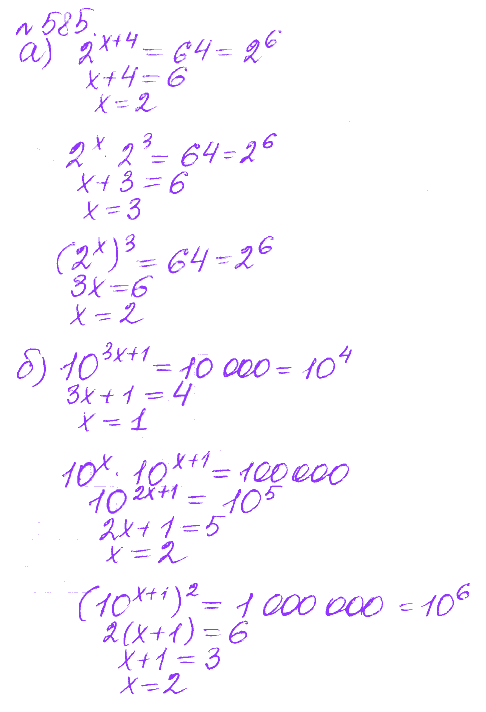 №585.
а) 2^{x+4} = 64 = 2^6
x+4 = 6
x = 2
2^x · 2^3 = 64 = 2^6
x+3 = 6
x = 3
(2^x)^3 = 64 = 2^6
3x = 6
x = 2
б) 10^{3x+1} = 10 000 = 10^4
3x+1 = 4
x = 1
10^x · 10^{x+1} = 100 000
10^{2x+1} = 10^5
2x+1 = 5
x = 2
(10^{x+1})^2 = 1 000 000 = 10^6
2(x+1) = 6
x+1 = 3
x = 2